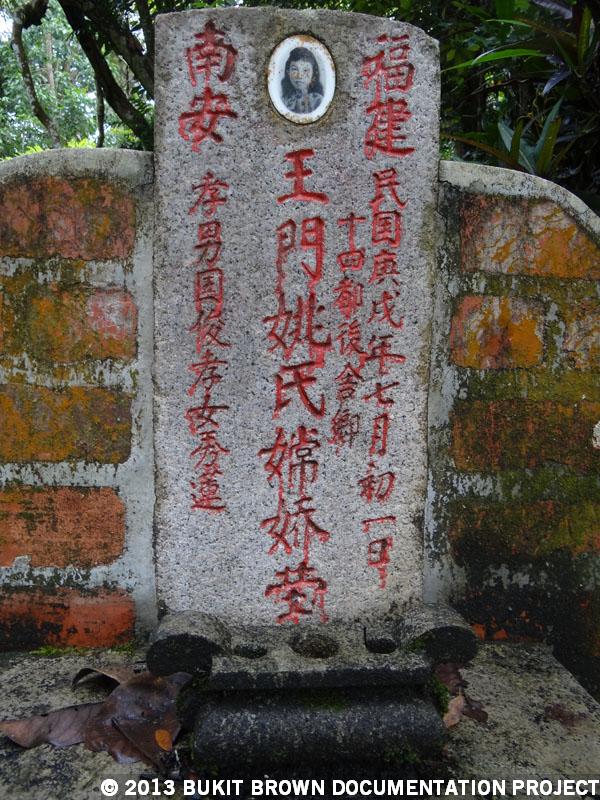 福建
民国庚戌年七月初一日
十四都後舍鄉
王門姚氏嫦娇茔
南安
孝男国俊孝女秀蓮
© 2013 BUKIT BROWN DOCUMENTATION PROJECT